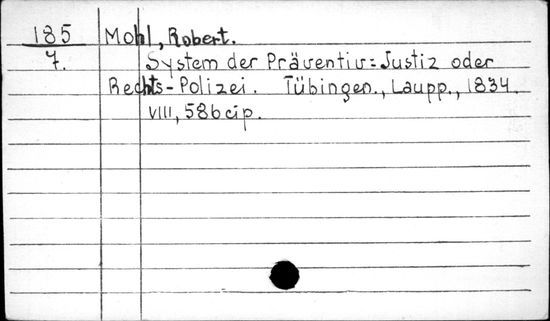 185 Mohl, Robert.
7. System der Präventiv=Justiz oder
Rechts-Polizei. Tübingen., Laupp., 1834.
VIII, 586 cip.